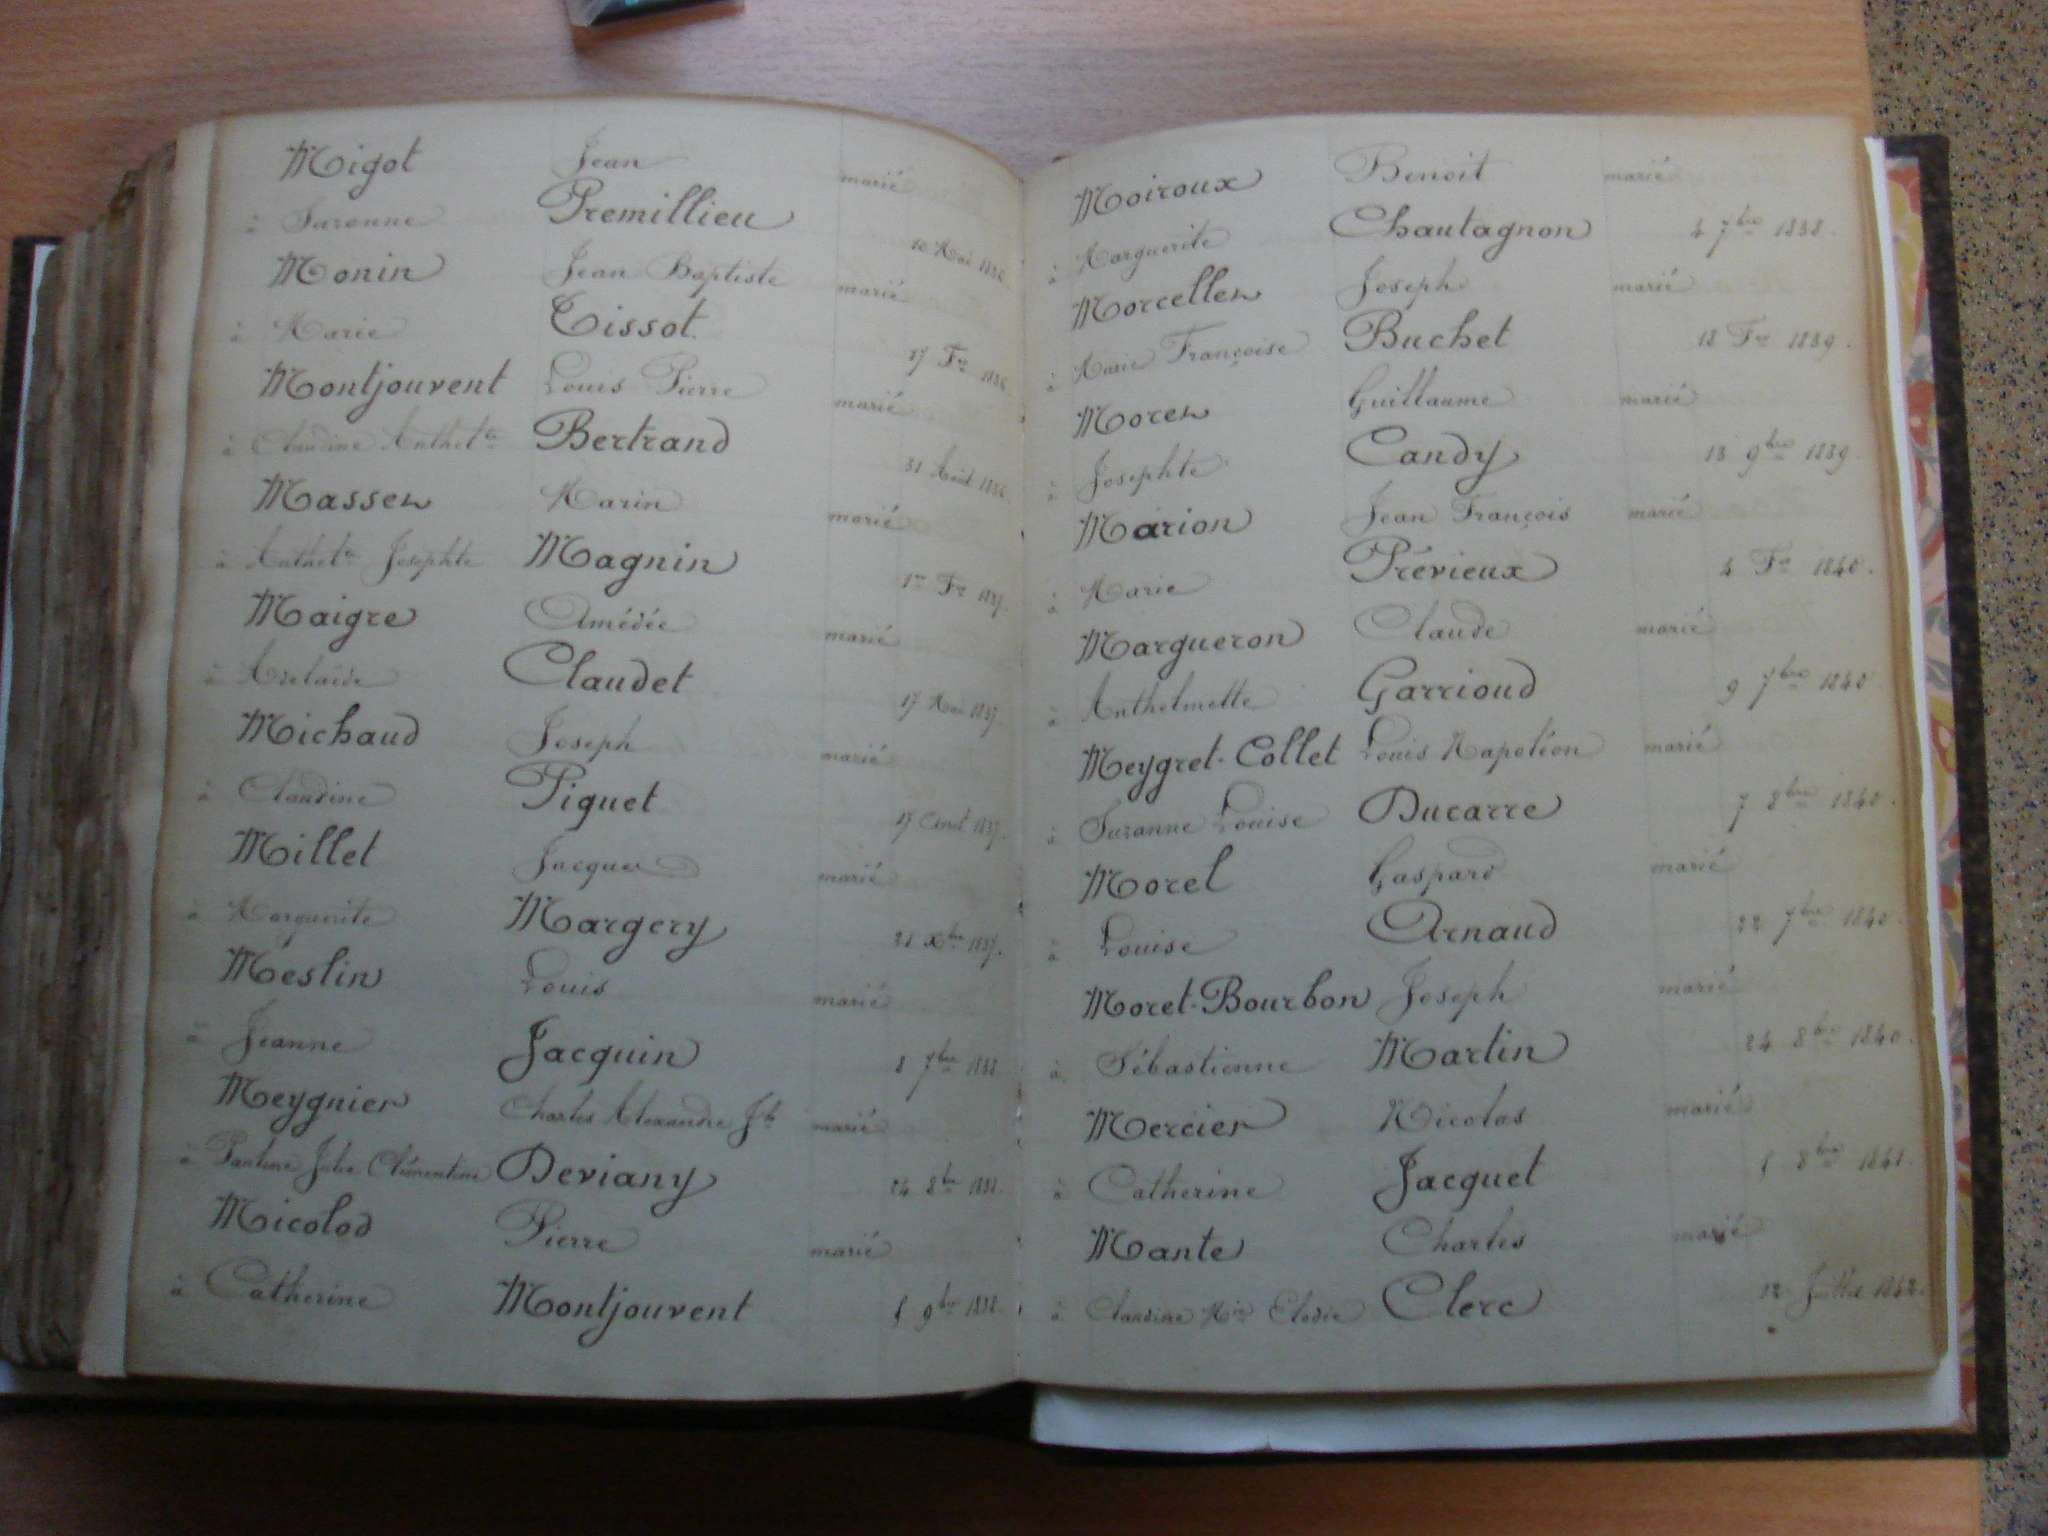 Migot Jean marié
à Suzanne Premillieu 10 Mai 1836.
Monin Jean Baptiste marié
à Marie Tissot. 17 Fer 1836
Montjouvent Louis Pierre marié
à Claudine Anthelte Bertrand 31 Août 1836.
Masson Marin marié
à Anthelte Josephte Magnin 1er Fr 1837.
Maigre Amédée marié
à Adelaïde Claudet 17 Mai 1837.
Michaud Joseph marié
à Claudine Piguet 17 Aout 1837.
Millet Jacques marié
à Marguerite Margery 21 Xbre 1837.
Meslin Louis marié
à Jeanne Jacquin 8 7bre 1838
Meygnier Charles Alexandre Jh marié
à Pauline Julie Clémentine Deviany 24 8bre 1838.
Micolod Pierre marié
à Catherine Montjouvent 8 9bre 1838.
Moiroux Benoit marié
à Marguerite Chautagnon 4 7bre 1838.
Morcellet Joseph marié
à Marie Françoise Buchet 18 Fer 1839.
Morel Guillaume marié
à Josephte Candy 13 9bre 1839.
Marion Jean François marié
à Marie Prévieux 4 Fer 1840.
Margueron Claude marié
à Anthelmette Garrioud 9 7bre 1840
Meygret-Collet Louis Napoléon marié
à Suzanne Louise Ducarre 7 8bre 1840.
Morel Gaspard marié
à Louise Arnaud 22 7bre 1840.
Moret-Bourbon Joseph marié
à Sébastienne Martin 24 8bre 1840.
Mercier Nicolas marié
à Catherine Jacquet 8bre 1841.
Mante Charles marié
à Claudine Mie Elodie Clerc 12 Juillet 1842.